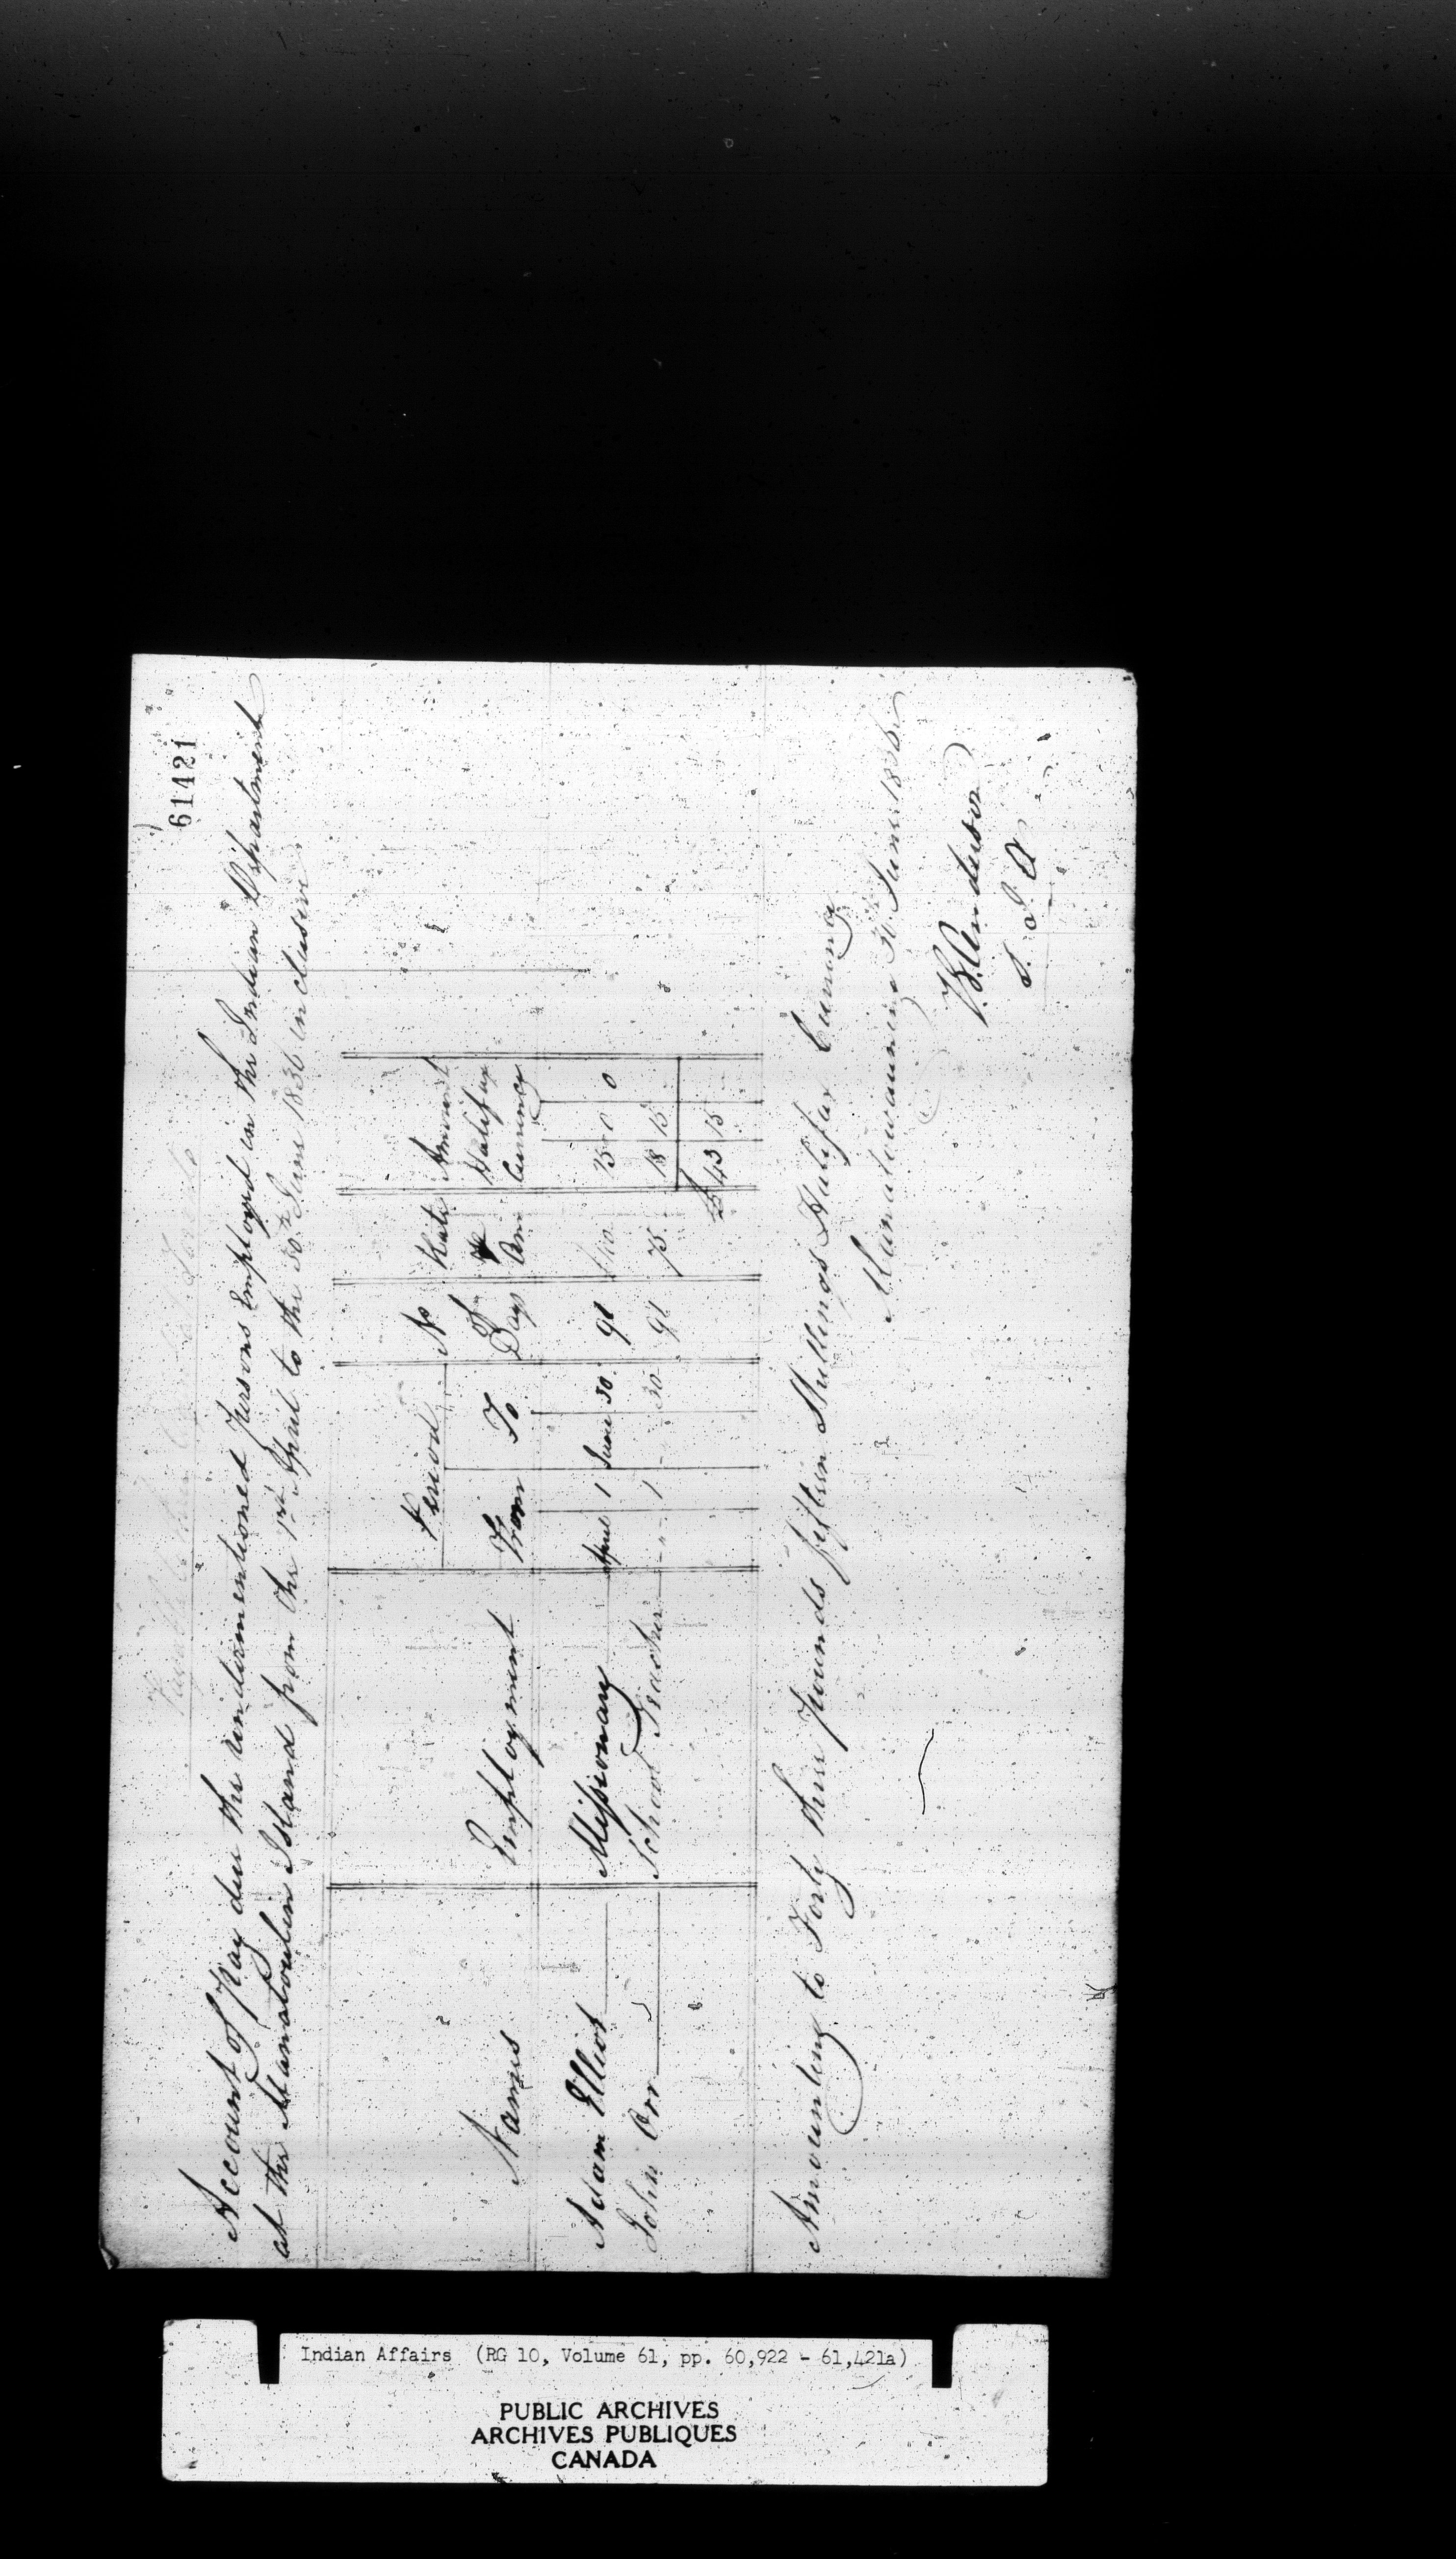 61421
Account of Pay due the undermentioned Persons Employed in the Indian Department
at the Manatoulin Island from the 1st April to the 30th June 1836 inclusive
Names Employment Period From To No of Days Rate Ann Amount Halifax Currency
Adam Elliot Missionary April 1 June 30 91 25 0 0
John Orr School Teacher " 1 " 30 91 75 18 15
£ 43 15
Amounting to Forty three pounds fifteen Shillings Halifax Currency
Manatowauning 30th June 1836
T.G. Anderson
S. I. A
Indian Affairs (RG 10, Volume 61, pp. 60,922 - 61,421a)
PUBLIC ARCHIVES
ARCHIVES PUBLIQUES
CANADA